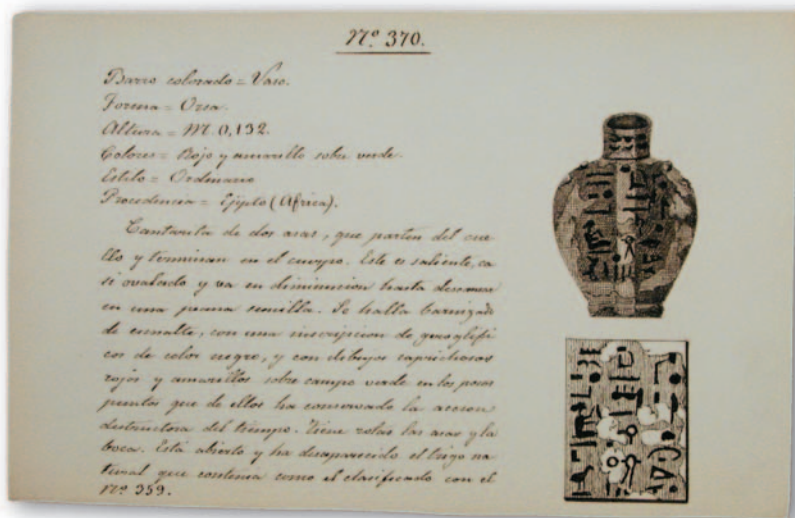 Nº 370.
Barro colorado = Vaso.
Forma = Orza.
Altura = M. 0,132.
Colores = Rojo y amarillo sobre verde.
Estilo = Ordinario
Procedencia = Ejipto (Africa).
Cantarita de dos asas, que parten del cue
llo y terminan en el cuerpo. Este es saliente, ca
si ovalado y va en diminucion hasta descansar
en una peana sencilla. Se halla barnizado
de esmalte, con una inscripcion de geroglifi
cos de color negro, y con dibujos caprichosos
rojos y amarillos sobre campo verde en los pocos
puntos que de ellos ha conservado la accion
destructora del tiempo. Tiene rotas las asas y la
boca. Está abierto y ha desaparecido el trigo na
tural que contenia como el clasificado con el
Nº 359.